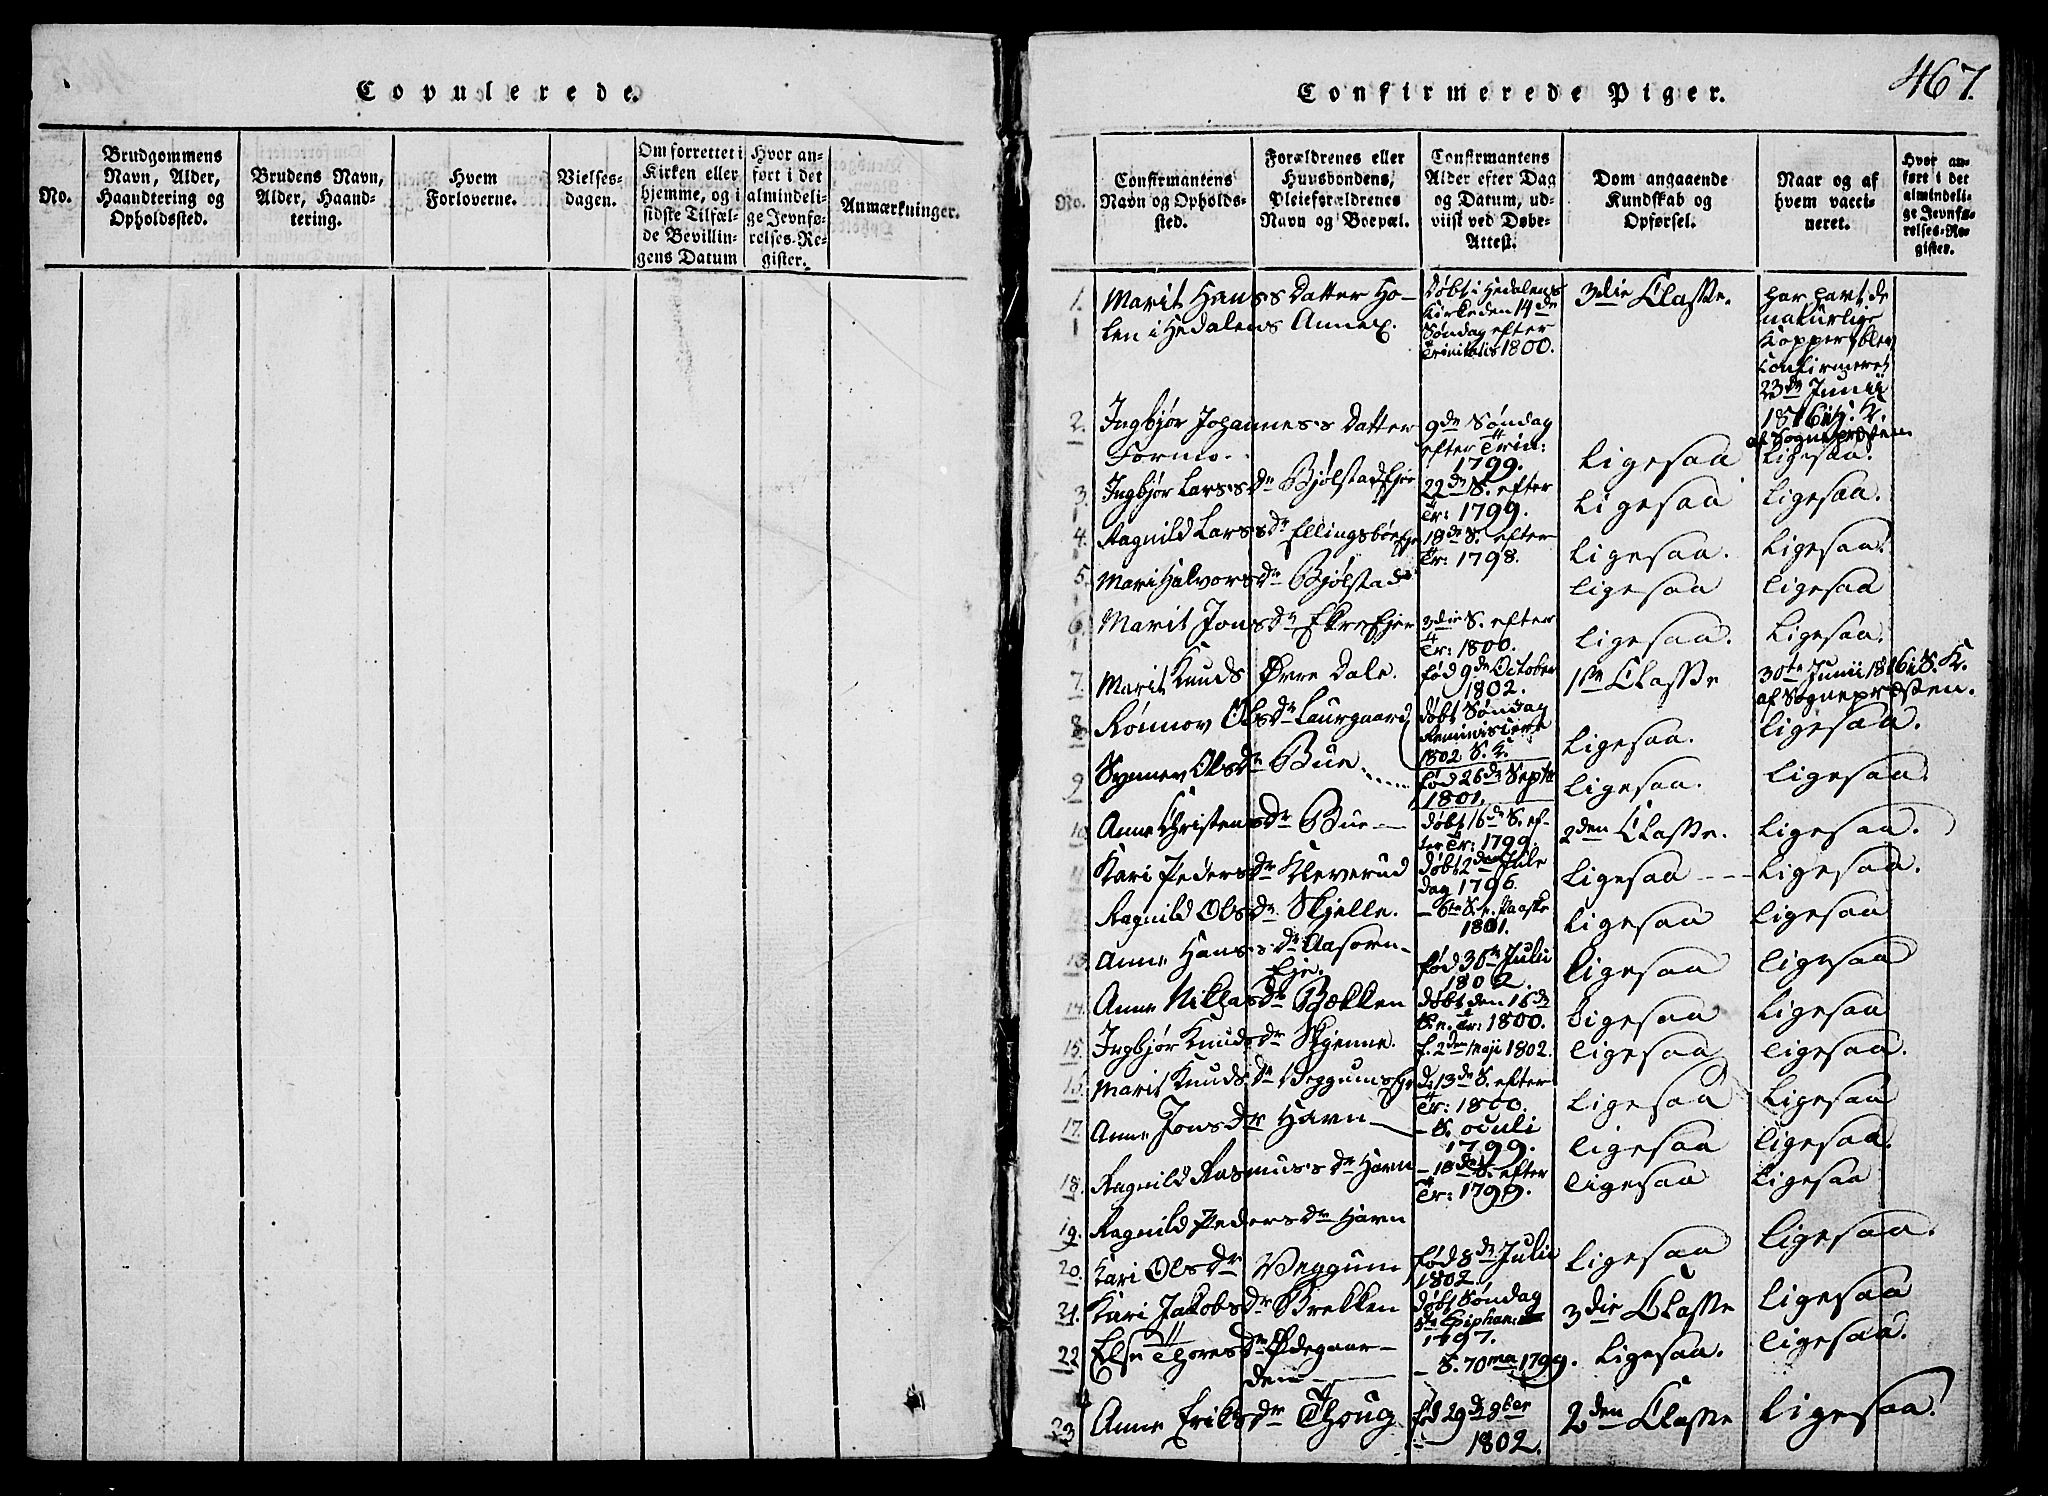 Copulerede.
No.
Brudgommens
Navn, Alder,
Haandtering og
Opholdssted.
Brudens Navn,
Alder, Haand-
tering.
Hvem
Forloverne.
Vielses-
dagen.
Om forrettet i
Kirken eller
hjemme, og i
sidste Tilfæl-
de Bevillin-
gens Datum
Hvor an-
ført i det
almindeli-
ge Jevnfø-
relses-Re-
gister.
Anmærkninger.
467.
Confirmerede Piger.
No.
Confirmantens
Navn og Opholds-
sted.
Forældrenes eller
Huusbondens,
Pleieforældrenes
Navn og Boepæl.
Confirmantens
Alder efter Dag
og Datum, ud-
viist ved Døbe-
Attest.
Dom angaaende
Kundskab og
Opførsel.
Naar og af
hvem vacci-
neret.
Hvor an-
ført i det
almindeli-
ge Jevnfø-
relses-Re-
gister.
1. Marit Hans's Datter Ho-
len i Hedalens Annex.
Døbt i Hedalens
Kirke den 14de
Søndag efter
Trinitatis 1800.
3die Classe.
har havt de
naturlige
Kopper, blev
Confirmeret
23de Junii
1816 i H. K.
af Sognepresten
2. Ingbjør Johannes's Datter
Formo.
9de Søndag
efter Trin:
1799.
ligesaa
ligesaa.
3. Ingbjør Lars's Dr Bjølstad Eje
22de S. efter
Tr: 1799.
ligesaa
ligesaa.
4. Ragnild Lars's Dr Ellingsbøe Eje
18de S. efter
Tr: 1798.
ligesaa.
ligesaa.
5. Mari Halvors Dr Bjølstad
ligesaa
ligesaa
6. Marit Jons Dr Ekre Ejer
3die S. efter
Tr: 1800.
ligesaa.
Ligesaa.
7. Marit Knuds Øvre Dale.
fød 9de October
1802.
1ste Classe
30te Junii 1816 i S. K.
af Sognepresten.
8. Rønnov Ols Dr Laurgaard
døbt Søndag
Reminiscere
1802 S. K.
ligesaa.
ligesaa.
9 Synnev Ols Dr Bue
fød 26de Septr
1801.
ligesaa.
ligesaa.
10. Anne Christens Dr Bue
døbt 16de S. ef-
ter Tr: 1799.
2den Classe.
ligesaa.
Kari Peders Dr Kleverud
døbt 2den Jule
dag 1796.
ligesaa
ligesaa.
Ragnild Ols Dr Skjelle.
S. e. Paaske
1801.
ligesaa
ligesaa
13. Anne Hans's Dr Aasorn-
Eje.
fød 30te Julii
1802.
ligesaa
ligesaa
14. Anne Niklas Dr Bækken
døbt den 16de
S. e. Tr: 1800.
Ligesaa
ligesaa
15. Ingbjør Knuds Dr Skjenne.
f. 2den Maji 1802.
ligesaa
ligesaa.
Marit Knuds Dr Veggums Eje
d. 13de S. efter
Tr: 1800.
ligesaa
ligesaa
17. Anne Jons Dr Havn
- S. oculi
1799.
ligesaa
ligesaa.
18. Ragnild Rasmus's Dr Havn
- 18de S. efter
Tr: 1799.
ligesaa
ligesaa
19. Ragnild Peders Dr Havn
20. Kari Ols Dr Veggum
fød 8de Julii
1802.
ligesaa
ligesaa.
21. Kari Jakobs Dr Brekken
døbt Søndag
Epiphan:
1797.
3die Classe
ligesaa
22 Else Thores Dr Ødegaar-
den
- S. 70ma 1799.
ligesaa.
ligesaa.
23 Anne Eriks Dr Thoug
fød 29de 8ber
1802.
2den Classe
ligesaa.